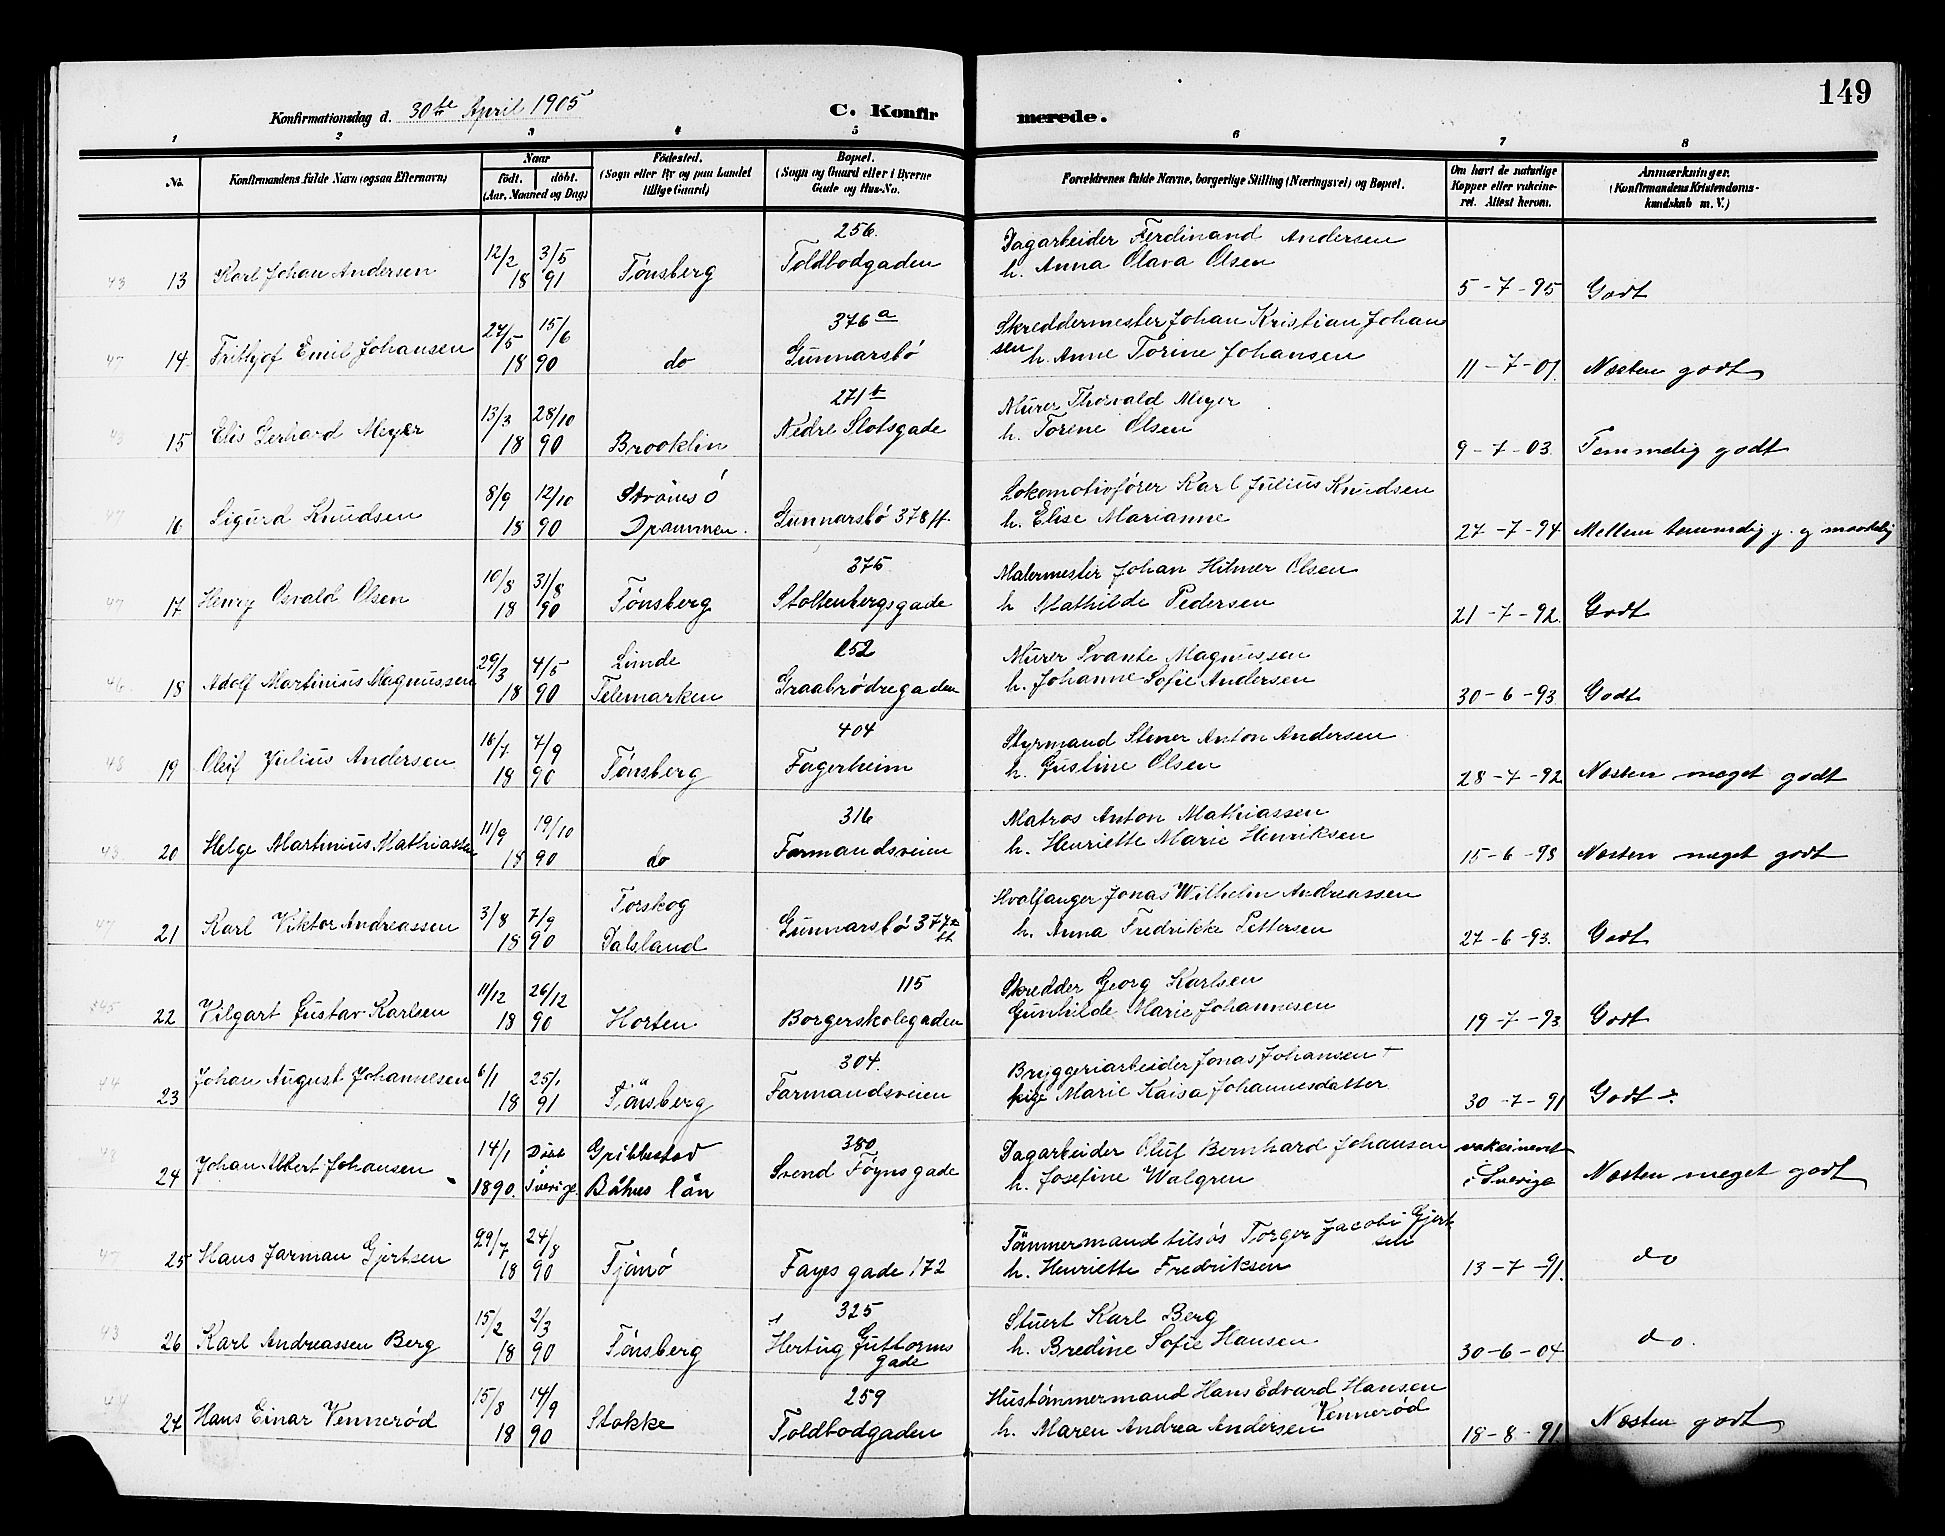 149
Konfirmationsdag d. 30te April 1905
C. Konfirmerede.
1 2 3 4 5 6 7 8
No. Konfirmandens fulde Navn (ogsaa Efternavn) Naar født. døbt. (Aar, Maaned og Dag) Fødested. (Sogn eller By og paa Landet tillige Gaard) Bopæl. (Sogn og Gaard eller i Byerne Gade og Hus-No. Forældrenes fulde Navne, borgerlige Stilling (Næringsvei) og Bopæl. Om havt de naturlige Kopper eller vakcineret. Attest herom. Anmærkninger. (Konfirmandens Kristendomskundskab m. V.)
43 13 Karl Johan Andersen 12/2 3/5 18 91 Tønsberg 256. Toldbodgaden Dagarbeider Ferdinand Andersen
h. Anna Olava Olsen 5-7-95 Godt
47 14 Frithjof Emil Johansen 27/5 15/6 18 90 do 376 a Gunnarsbø Skreddermester Johan Kristian Johansen
h. Anne Torine Johansen 11-7-01. Næsten godt
43 15 Elis Gerhard Meyer 13/3 28/10 18 90 Brooklin 271 b Nedre Slotsgade Murer Thorvald Meyer
h. Torene Olsen 9-7-03. Temmelig godt
47 16 Sigurd Knudsen 8/9 12/10 18 90 Strømsø Drammen. Gunnarsbø 378 ff. Lokomotivfører Karl Julius Knudsen
h. Elise Marianne 27-7-94 Mellem temmelig g. og maadelig
47 17 Henry Osvald Olsen 10/8 31/8 18 90 Tønsberg 375 Stoltenbergsgade Malermester Johan Hilmer Olsen
h Mathilde Pedersen 21-7-92. Godt
46 18 Adolf Martinius Magnussen 29/3 4/5 18 90 Lunde Telemarken 252 Graabrødregaden Murer Svante Magnussen
h. Johanne Sofie Andersen 30-6-93 Godt
48 19 Oleif Julius Andersen 16/7 7/9 18 90 Tønsberg 404 Fagerheim Styrmand Stener Anton Andersen
h. Gustine Olsen 28-7-92 Næsten meget godt
43 20 Helge Martinius Mathiassen 11/9 19/10 18 90 do 316 Farmandsveien Matros Anton Mathiassen
h. Henriette Marie Henriksen 15-6-98 Næsten meget godt
47 21 Karl Viktor Andreassen 3/8 7/9 18 90 Torskog Dalsland Gunnarsbø 377 Hvalfanger Jonas Wilhelm Andreassen
h. Anna Fredrikke Pettersen 27-6-93. Godt
22 Vilgart Gustav Karlsen 11/12 26/12 18 90 Horten 115 Borgerskolegaden Skredder Georg Karlsen
Gunhilde Marie Johannesen 19-7-93 Godt
44 23 Johan August Johannesen 6/1 25/1 18 91 Tönsberg 304. Farmandsveien Bryggeriarbeider Jonas Johansen +
pige Marie Kaisa Johannesdatter 30-7-91 Godt
48 24 Johan Albert Johansen 14/1 1890. Døbt i Sverige. Gribbestad Båhus län 380 Svend Føynsgade Dagarbeider Oluf Bernhard Johansen
h. Josefine Walgren vakcineret i Sverige Næsten meget godt
47 25 Hans Jarman Gjertsen 29/7 24/8 18 90 Tjømø Fayes gade 172 Tömmermand tilsøs Torger Jacobi Gjertsen
h. Henriette Fredriksen 13-7-91. do
43 26 Karl Andreassen Berg 15/2 2/3 18 90 Tønsberg 325 Hertug Guttorms gade Stuert Karl Berg
h. Bredine Sofie Hansen 30-6-04 do.
44 27 Hans Einar Vennerød 15/8 14/9 18 90 Stokke 259 Toldbodgaden Hustømmermand Hans Edvard Hansen Vennerød
h. Maren Andrea Andersen 18-8-91. Næsten godt